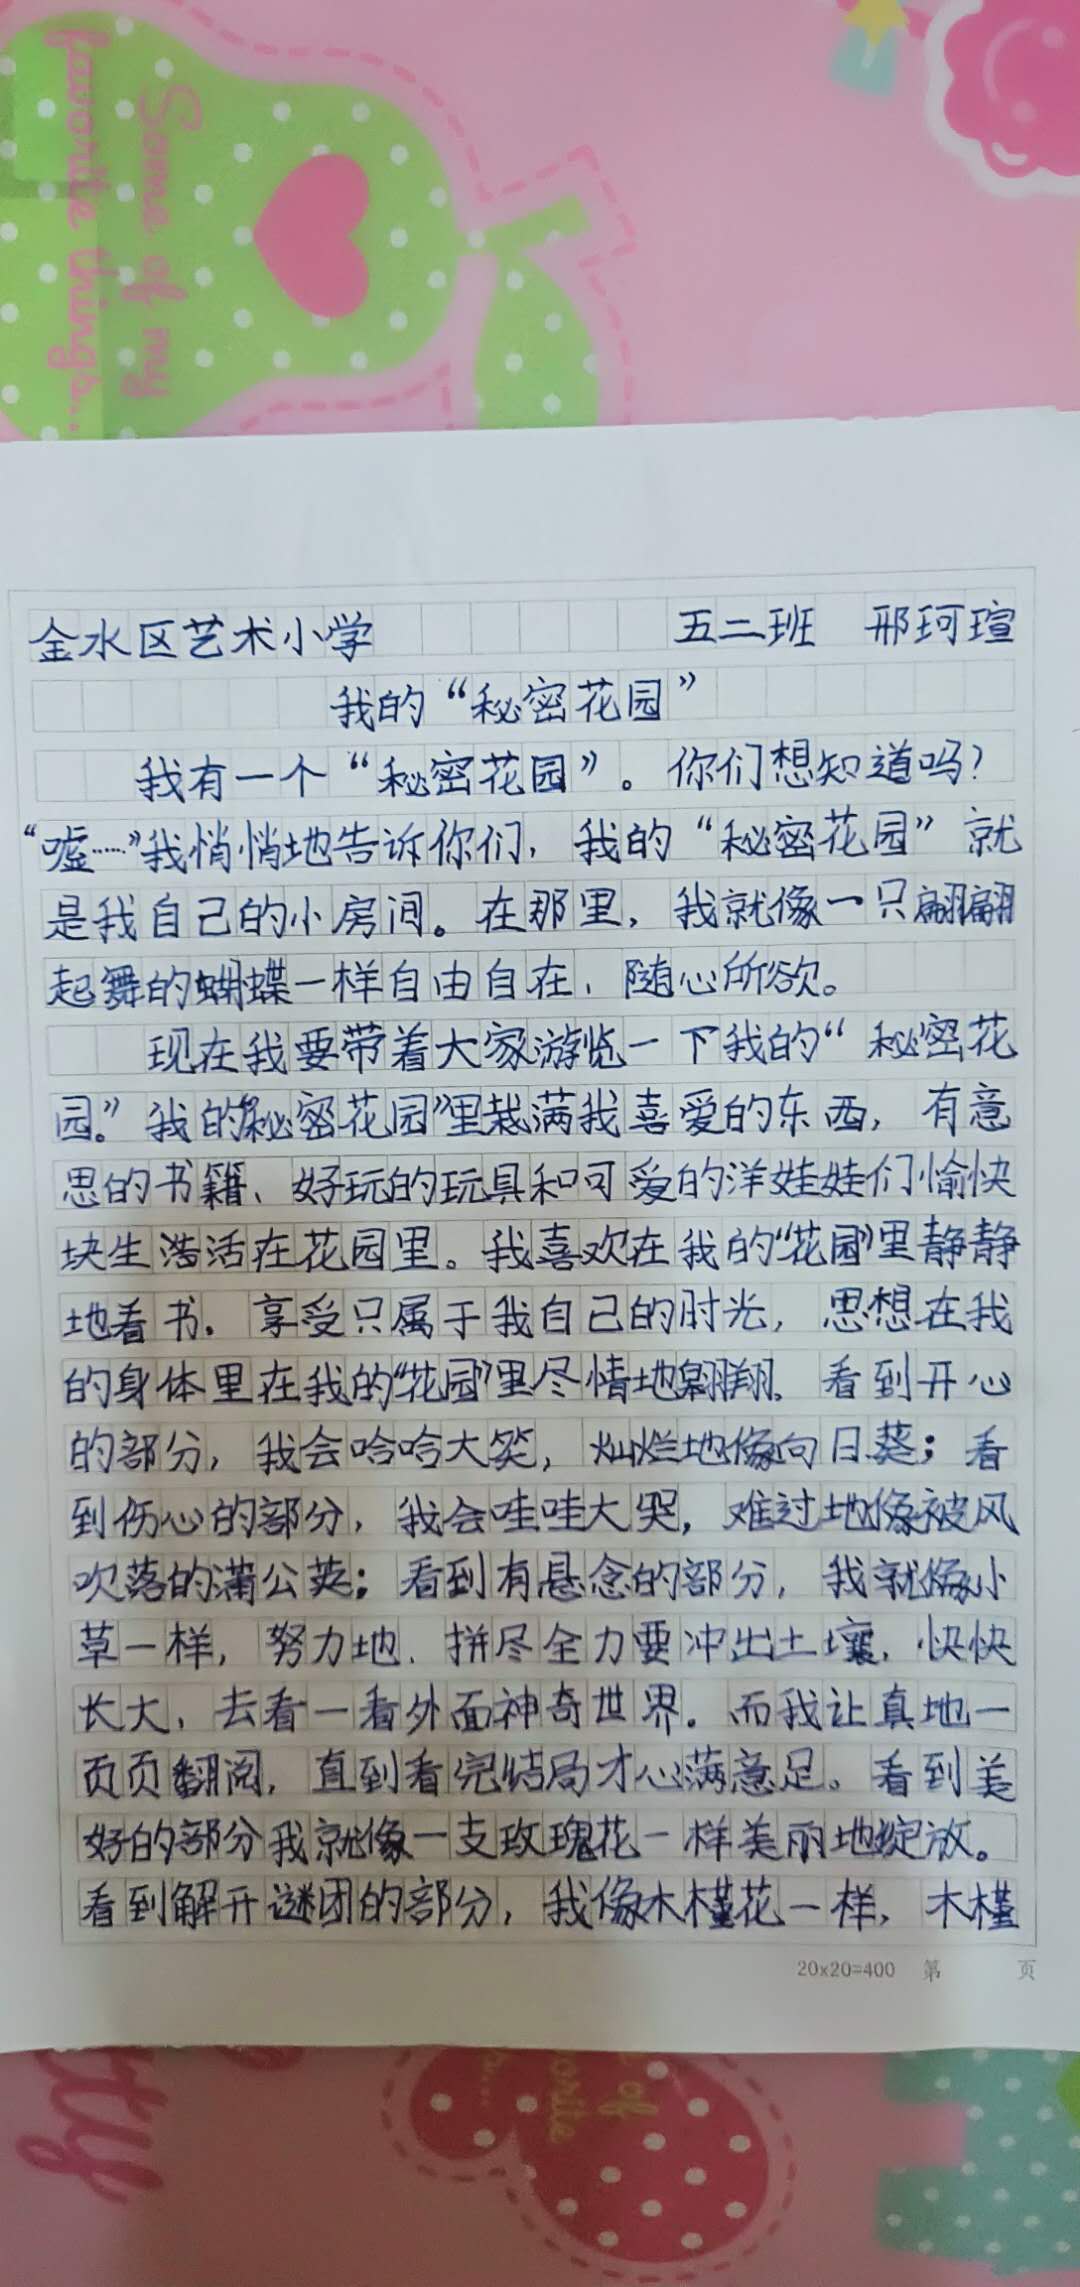 Some of my
favorite things...
金水区艺术小学 五二班 邢珂瑄
我的“秘密花园”
我有一个“秘密花园”。你们想知道吗?
“嘘……”我悄悄地告诉你们，我的“秘密花园”就
是我自己的小房间。在那里，我就像一只翩翩
起舞的蝴蝶一样自由自在、随心所欲。
现在我要带着大家游览一下我的“秘密花
园。”我的“秘密花园”里栽满我喜爱的东西，有意
思的书籍、好玩的玩具和可爱的洋娃娃们愉快
块生活活在花园里。我喜欢在我的“花园”里静静
地看书。享受只属于我自己的时光，思想在我
的身体里在我的“花园”里尽情地翱翔。看到开心
的部分，我会哈哈大笑，灿烂地像向日葵；看
到伤心的部分，我会哇哇大哭，难过地像被风
吹落的蒲公英；看到有悬念的部分，我就像小
草一样，努力地、拼尽全力要冲出土壤，快快
长大，去看一看外面神奇世界。而我让真地一
页页翻阅，直到看完结局才心满意足。看到美
好的部分我就像一支玫瑰花一样美丽地绽放。
看到解开谜团的部分，我像木槿花一样，木槿
20x20=400 第 页
tty
of